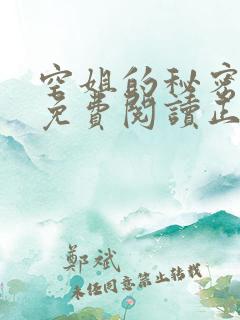 空姐的秘密
免費閱讀正
鄭斌
未任同意禁止轉載